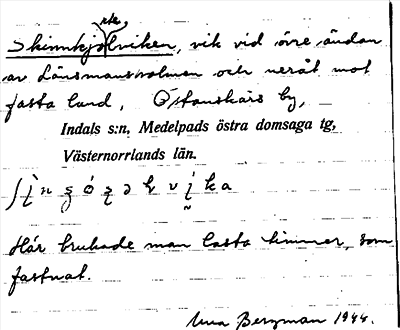 rke
Skinnkjolviken, vik vid övre ändan
av Länsmansholmen och neråt mot
fasta land, Östanskärs by,
Indals s:n, Medelpads östra domsaga tg,
Västernorrlands län.
Här brukade man lasta timmer, som
fastnat.
Bergman 1944.